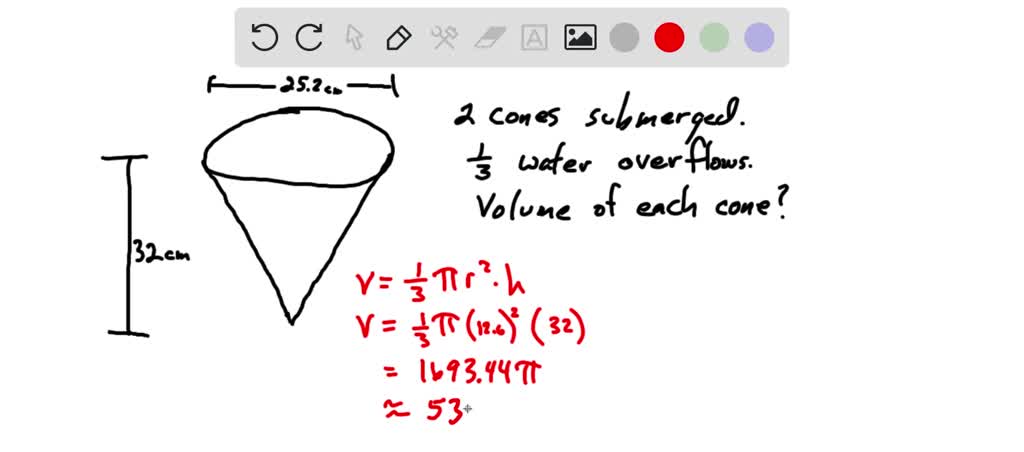 A
25.2cm
2 cones submerged.
1/3 water overflows.
Volume of each cone?
32cm
V = 1/3 π r² · h
V = 1/3 π (12.6)² (32)
= 1693.44π
≈ 53